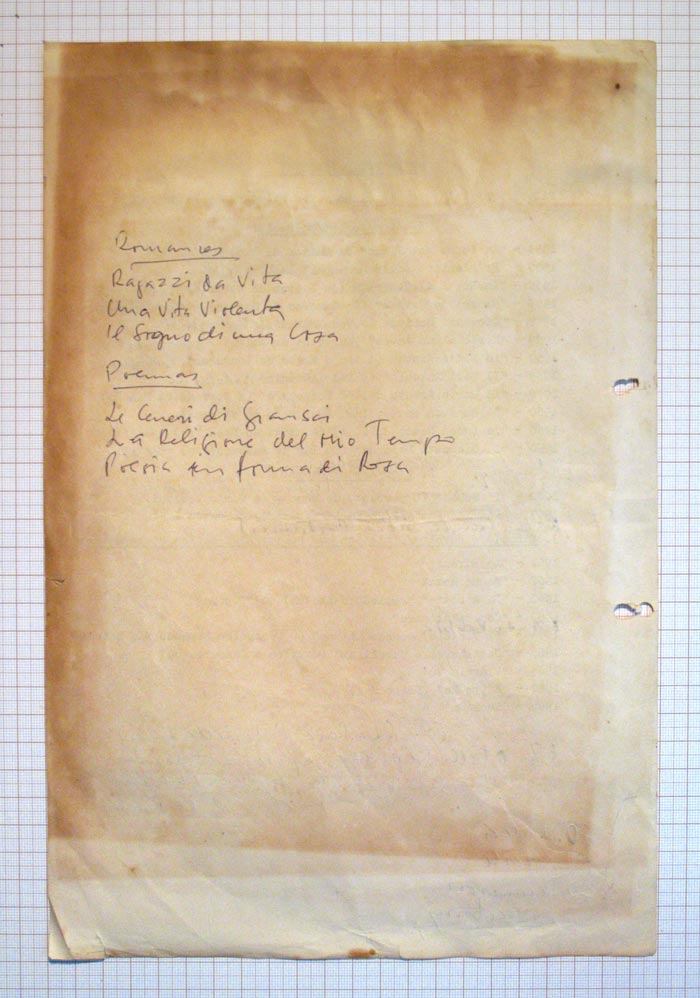 Romances
Ragazzi da Vita
Una Vita Violenta
Il Sogno di una Cosa
Poemas
Le Ceneri di Gramsci
La Religione del mio Tempo
Poesia in forma di Rosa